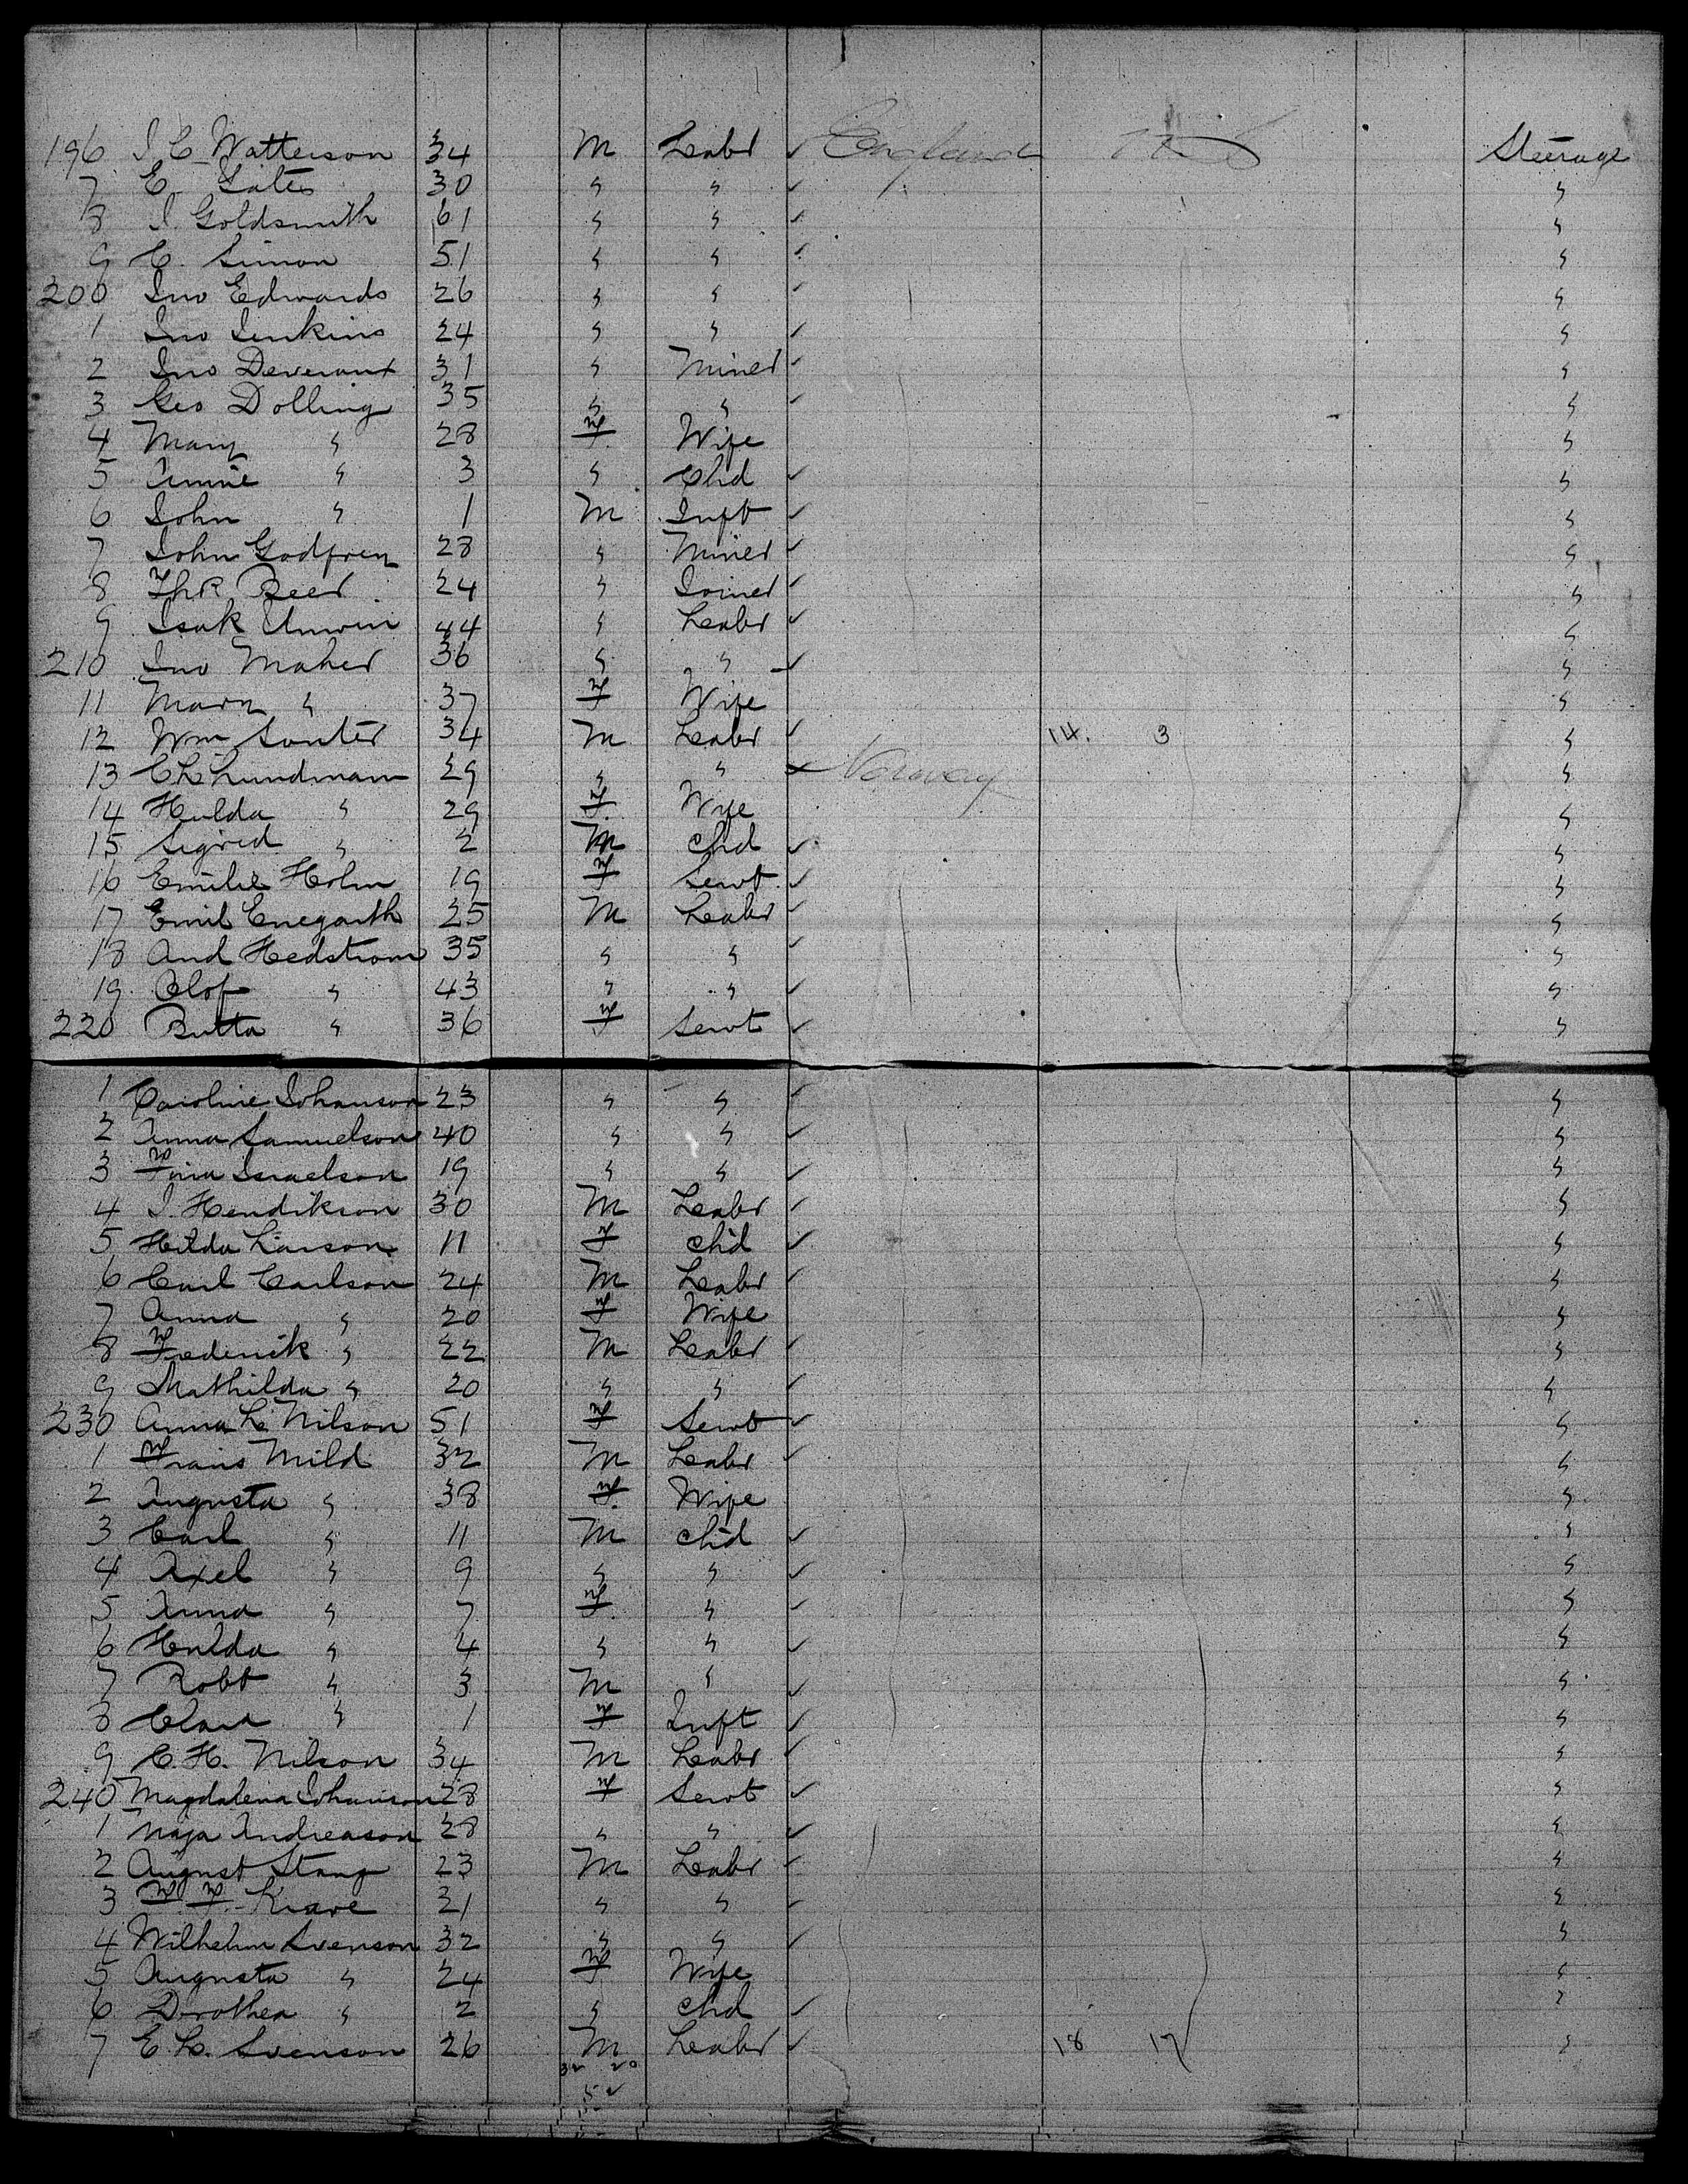 196 J C Watterson 34 M Labr ✓ England Steerage
7 E. Yates 30 " " ✓ "
8 J. Goldsmith 61 " " ✓ "
9 C. Simon 51 " " ✓ "
200 Jno Edwards 26 " " ✓ "
1 Jno Jenkins 24 " " ✓ "
2 Jno Deveraux 31 " Miner ✓ "
3 Geo Dolling 35 " " ✓ "
4 Mary " 28 F Wife "
5 Annie " 3 " Chd ✓ "
6 John " 1 M Inft ✓ "
7 John Godfrey 28 " Miner ✓ "
8 Beer 24 " Joiner ✓ "
9 Isak Unwin 44 " Labr ✓ "
210 Jno Maher 36 " " ✓ "
11 Mary " 37 F Wife "
12 Wm Souter 34 M Labr ✓ 14. 3 "
13 C L Lundmann 29 " " ✓ Norway "
14 Hulda " 29 F. Wife "
15 Sigrid " 2 M Chd ✓ "
16 Emilie Holm 19 F Servt ✓ "
17 Emil Enegarth 25 M Labr ✓ "
18 And Hedstrom 35 " " ✓ "
19 Olof " 43 " " ✓ "
220 Britta " 36 F Servt ✓ "
1 Caroline Johanson 23 " " ✓ "
2 Anna Samuelson 40 " " ✓ "
3 Israelson 19 " " ✓ "
4 J. Hendrikson 30 M Labr ✓ "
5 Hilda Larson 11 F Chd ✓ "
6 Carl Carlson 24 M Labr ✓ "
7 Anna " 20 F Wife "
8 Frederick " 22 M Labr ✓ "
9 Mathilda " 20 " " ✓ "
230 Anna L. Nilson 51 F Servt ✓ "
1 Frans Mild 32 M Labr ✓ "
2 Augusta " 38 F. Wife "
3 Carl " 11 M Chd ✓ "
4 Axel " 9 " " ✓ "
5 Anna " 7 F. " ✓ "
6 Hulda " 4 " " ✓ "
7 Robt " 3 M " ✓ "
8 Clara " 1 F Inft ✓ "
9 C. H. Nilson 34 M Labr ✓ "
240 Magdalena Johanson 28 F Servt ✓ "
1 Andreason 28 " " ✓ "
2 August Stang 23 M Labr ✓ "
3 F. F. Krave 21 " " ✓ "
4 Wilhelm Svenson 32 " " ✓ "
5 Augusta " 24 F. Wife "
6 Dorothea " 2 " Chd ✓ "
7 E. L. Svenson 26 M Labr ✓ 18 17 "
32 20